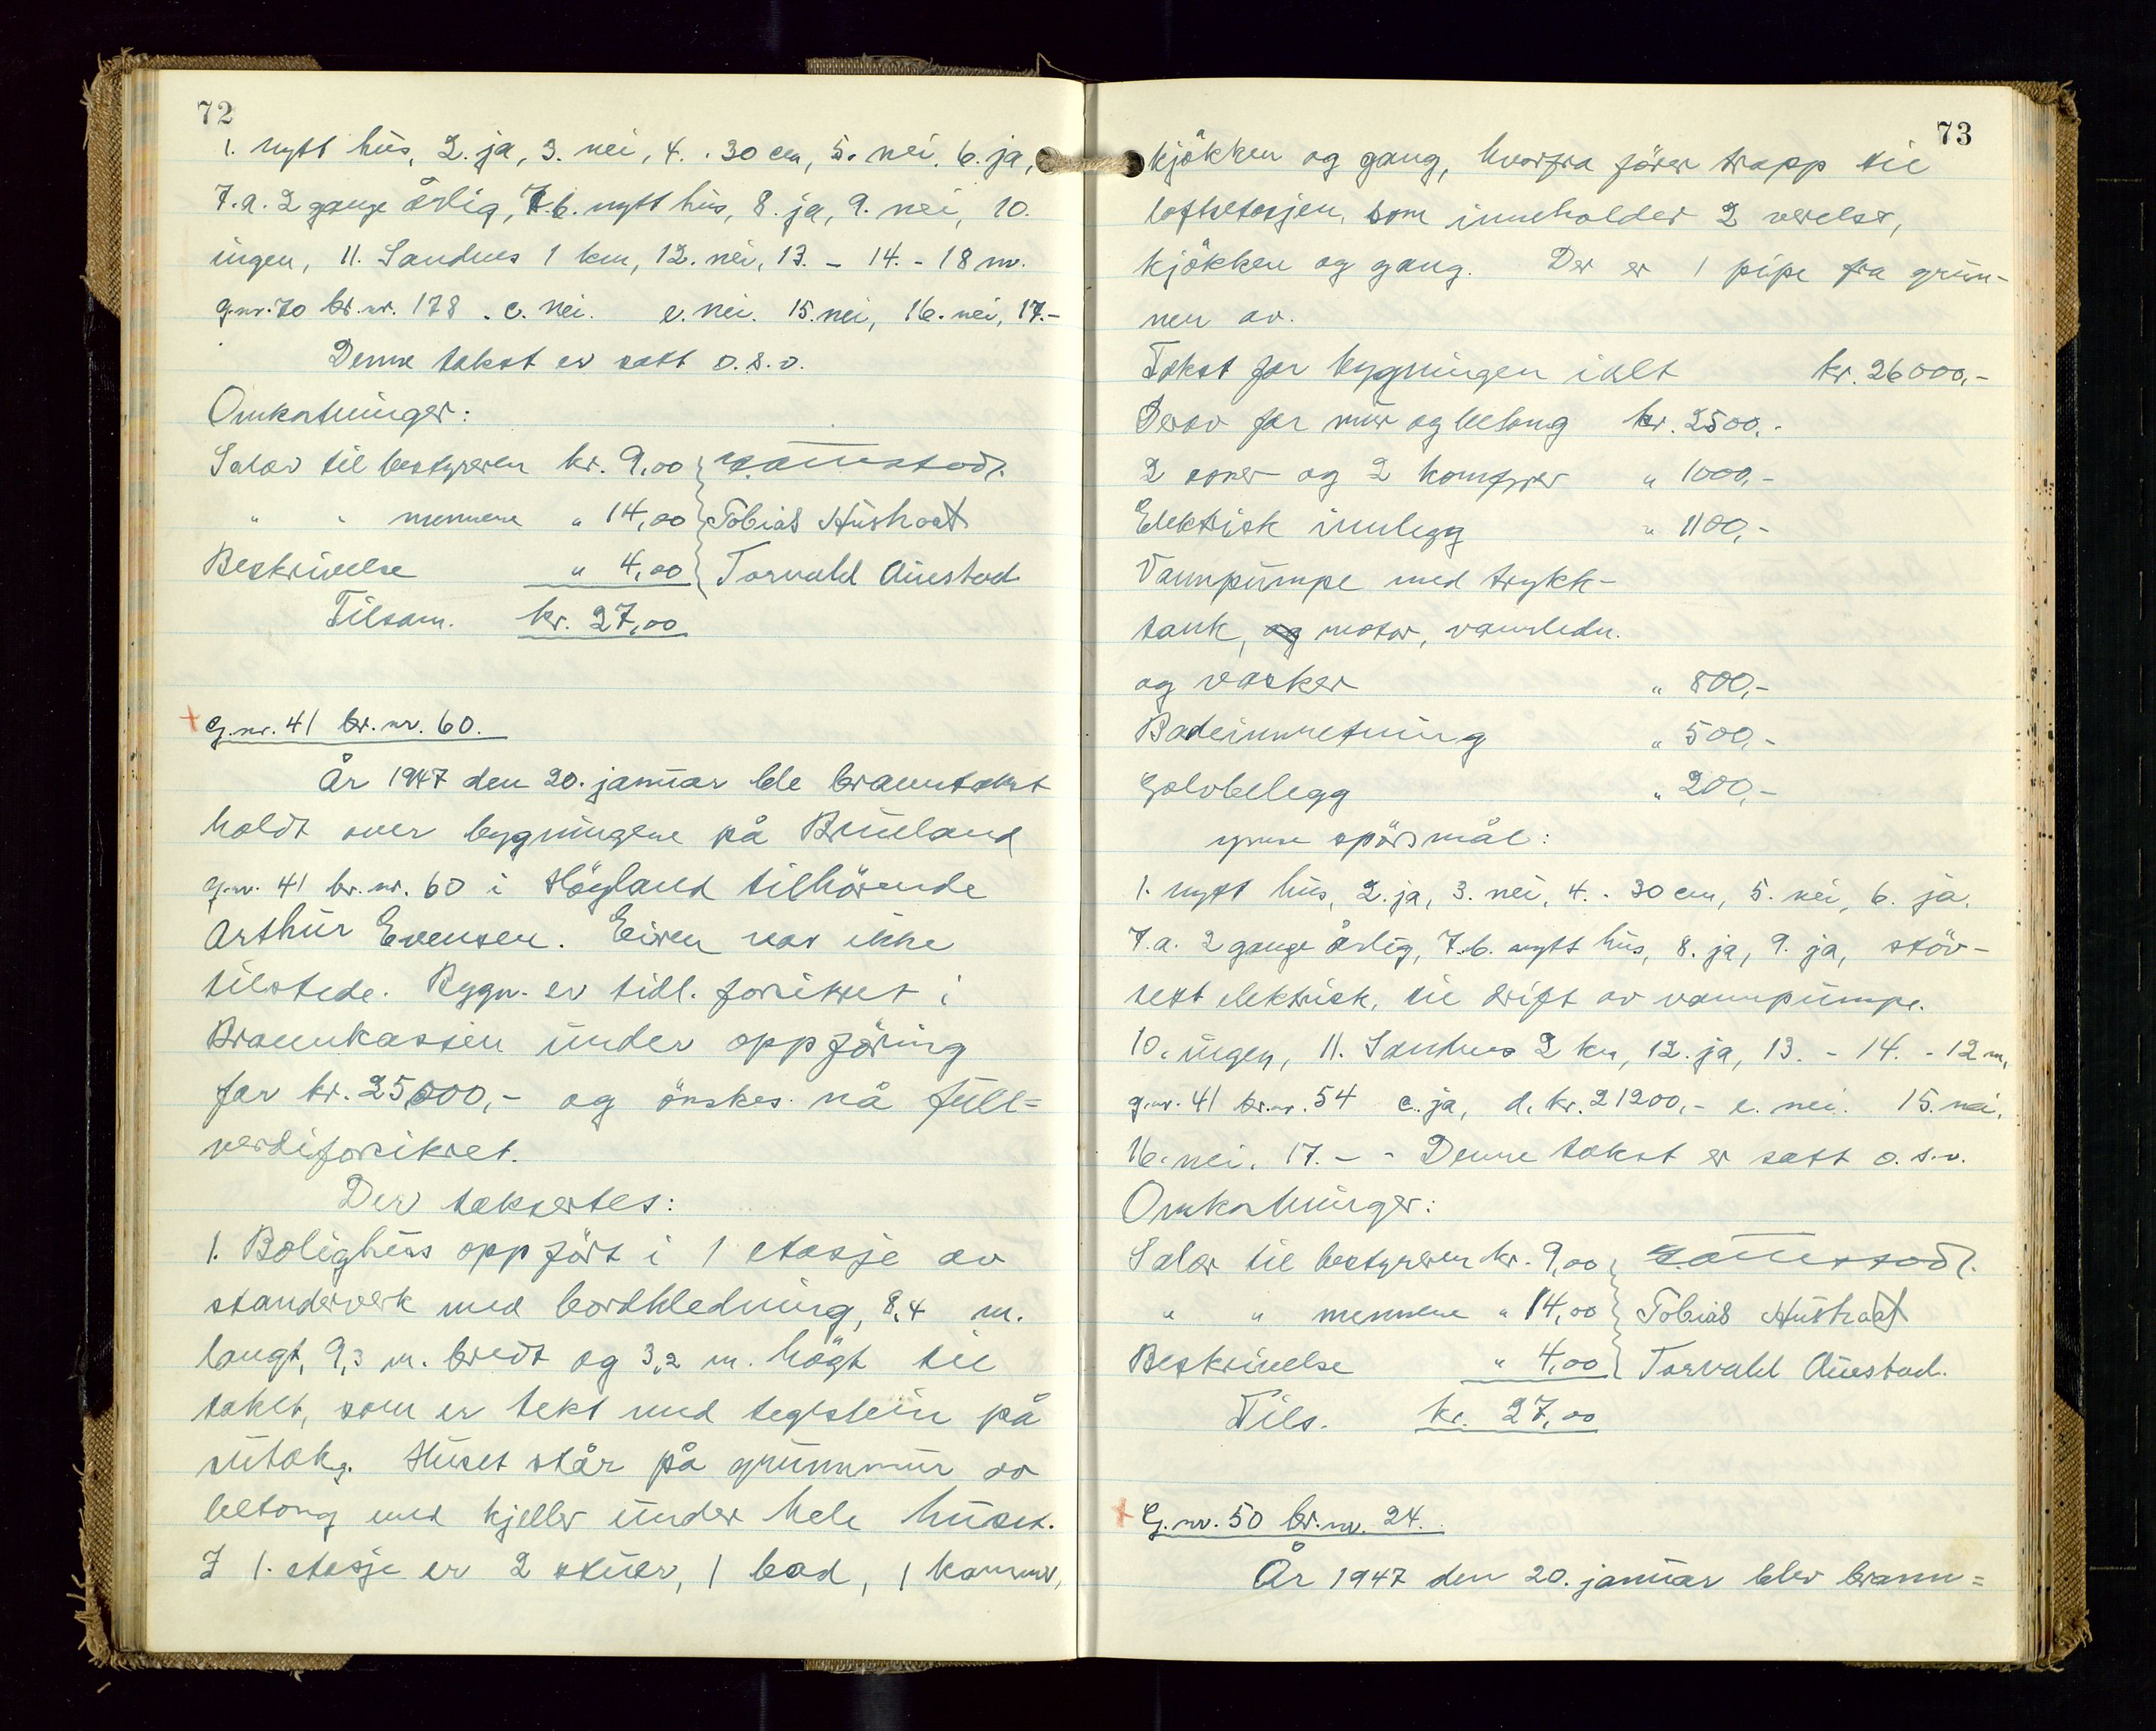 72
1. nytt hus, 2. ja, 3. nei, 4. . 30 cm, 5. nei. 6. ja,
7.a. 2 gange årlig, 7.b. nytt hus, 8. ja, 9. nei, 10.
ingen, 11. Sandnes 1 km, 12. nei, 13. - 14. - 18 m.
g.nr. 70 br.nr. 178 . c. nei. e. nei. 15. nei, 16. nei, 17.-
Denne takst er satt o.s.v.
Omkostninger:
Salær til bestyreren kr. 9,00
" " mennene " 14,00 Tobias Hushoat
Beskrivelse " 4,00 Torvald Austad
Tilsam. kr. 27,00
G.nr. 41 br.nr. 60.
År 1947 den 20. januar ble branntakst
holdt over bygningene på Bruland
g.nr. 41 br.nr. 60 i Høyland tilhörende
Arthur Evensen. Eiren var ikke
tilstede. Bygn. er tidl. forsikret i
Brannkassen under oppföring
for kr. 25000,- og önskes nå full=
verdiforsikret.
Der taksertes:
1. Bolighus oppfört i 1 etasje av
standerverk med bordkledning, 8,4 m.
langt, 9,3 m. bredt og 3,2 m. högt til
taket, som er tekt med teglstein på
sutak. Huset står på grunnmur av
betong med kjeller under hele huset.
I 1. etasje er 2 stuer, 1 bad, 1 kammer,
73
kjökken og gang, hvorfra förer trapp til
loftsetasjen, som inneholder 2 værelser,
kjökken og gang. Der er 1 pipe fra grun-
nen av.
Takst for bygningen ialt kr. 26000,-
Derav for mur og betong kr. 2500,-
2 ovner og 2 komfyrer " 1000,-
Elektrisk innlegg " 1100,-
Vannpumpe med trykk-
tank, og motor, vannledn.
og vasker " 800,-
Badeinnretning " 500,-
Golvbelegg " 200,-
ymse spörsmål:
1. nytt hus, 2. ja, 3. nei, 4. - 30 cm, 5. nei, 6. ja.
7.a. 2 gange årlig, 7.b. nytt hus, 8. ja, 9. ja, stöv-
tett elektrisk, til drift av vannpumpe.
10. ingen, 11. Sandnes 2 km, 12. ja, 13. - 14. - 12 m,
g.nr. 41 br.nr. 54 c. ja, d. kr. 21200,- e. nei. 15. nei,
16. nei, 17. - - Denne takst er satt o.s.v.
Omkostninger:
Salær til bestyreren kr. 9,00
" " mennene " 14,00 Tobias Hushoat
Beskrivelse " 4,00 Torvald Austad.
Tils. kr. 27,00
G.nr. 50 br.nr. 24.
År 1947 den 20. januar blev brann=